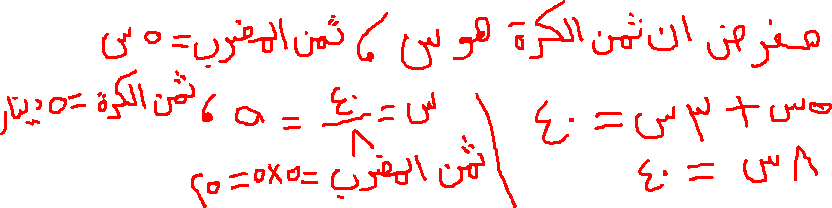 نفرض ان ثمن الكرة هو س ، ثمن المضرب = ٥ س
٥س + ٣س = ٤٠
٨س = ٤٠
س = ٤٠/٨ = ٥ ، ثمن الكرة = ٥ دينار
ثمن المضرب = ٥×٥ = ٢٥